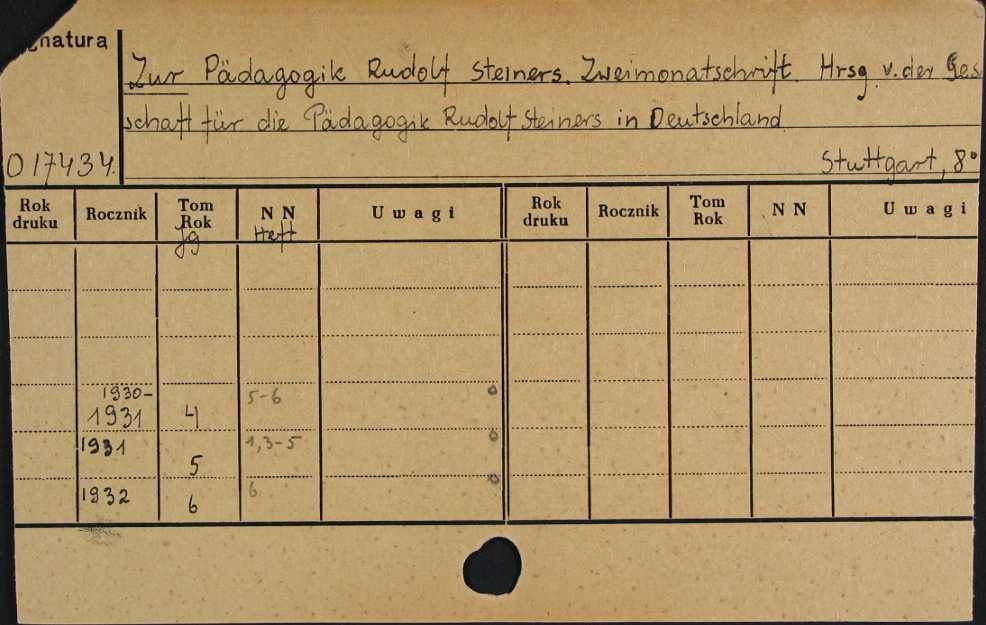 gnatura
Zur Pädagogik Rudolf Steiners. Zweimonatschrift. Hrsg. v. der Ges
schaft für die Pädagogik Rudolf Steiners in Deutschland
O 17434. Stuttgart, 8°
Rok druku Rocznik Tom Rok Jg NN Heft Uwagi Rok druku Rocznik Tom Rok NN Uwagi
1930-1931 4 5-6
1931 5 1,3-5
1932 6 6